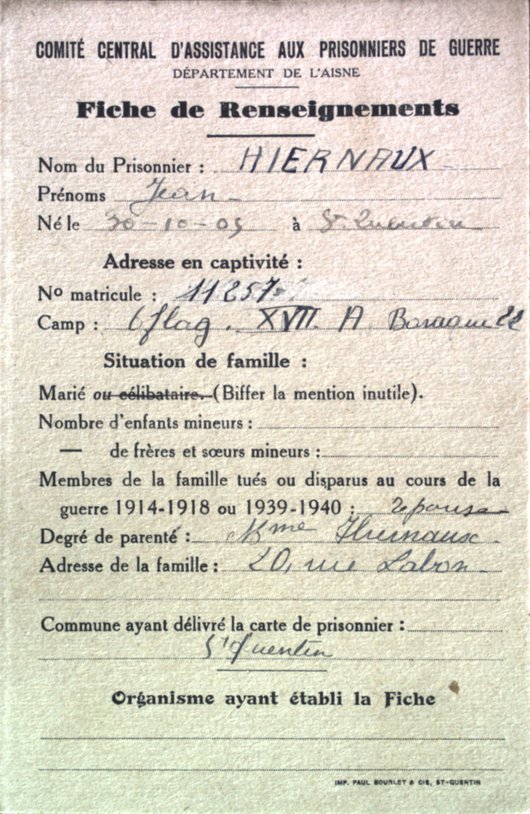 COMITÉ CENTRAL D'ASSISTANCE AUX PRISONNIERS DE GUERRE
DÉPARTEMENT DE L'AISNE
Fiche de Renseignements
Nom du Prisonnier : HIERNAUX
Prénoms Jean
Né le 30-10-05 à St. Quentin
Adresse en captivité :
No matricule : 11257
Camp : Oflag. XVII. A. Baraque 22
Situation de famille :
Marié ou célibataire. (Biffer la mention inutile).
Nombre d'enfants mineurs :
— de frères et sœurs mineurs :
Membres de la famille tués ou disparus au cours de la
guerre 1914-1918 ou 1939-1940 :
Degré de parenté : Mme Hiernaux
Adresse de la famille : 20, rue Labon
Commune ayant délivré la carte de prisonnier :
St Quentin
Organisme ayant établi la Fiche
IMP. PAUL BOURLET & CIE, ST-QUENTIN